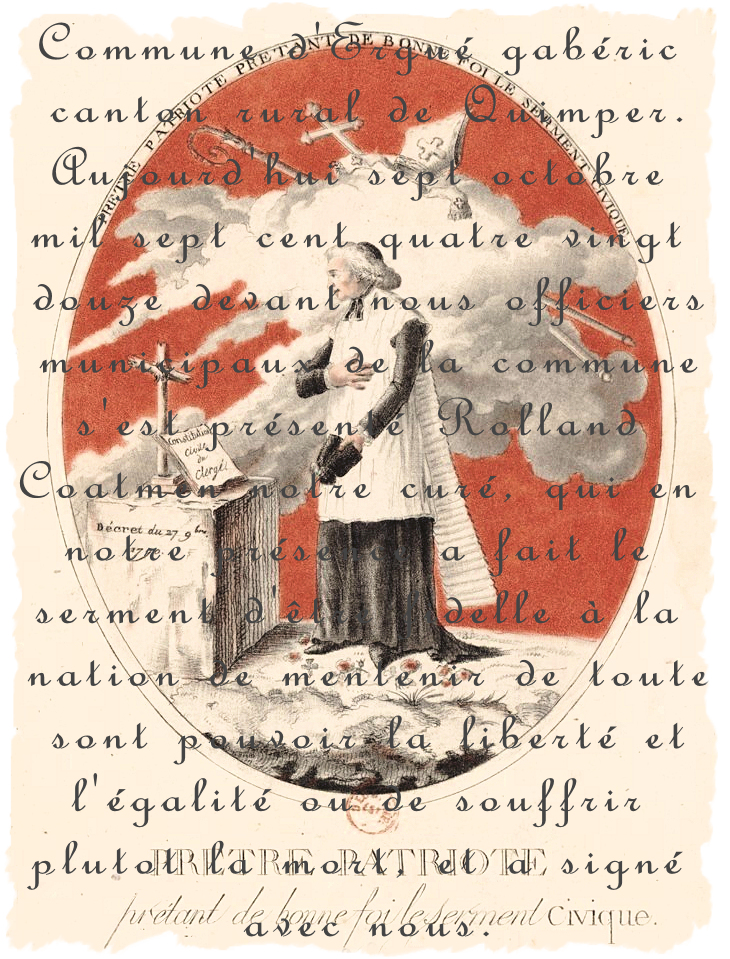 PRETRE PATRIOTE PRETANT DE BONNE FOI LE SERMENT CIVIQUE
Commune d'Ergué gabéric
canton rural de Quimper.
Aujourd'hui sept octobre
mil sept cent quatre vingt
douze devant nous officiers
municipaux de la commune
s'est présenté Rolland
Coatmen notre curé, qui en
notre présence a fait le
serment d'être fidelle à la
nation de mentenir de toute
sont pouvoir la liberté et
l'égalité ou de souffrir
plutot la mort, et a signé
avec nous.
Constitution
civile
du
clergé
Décret du 27 9bre
PRETRE PATRIOTE
prétant de bonne foi le serment Civique.